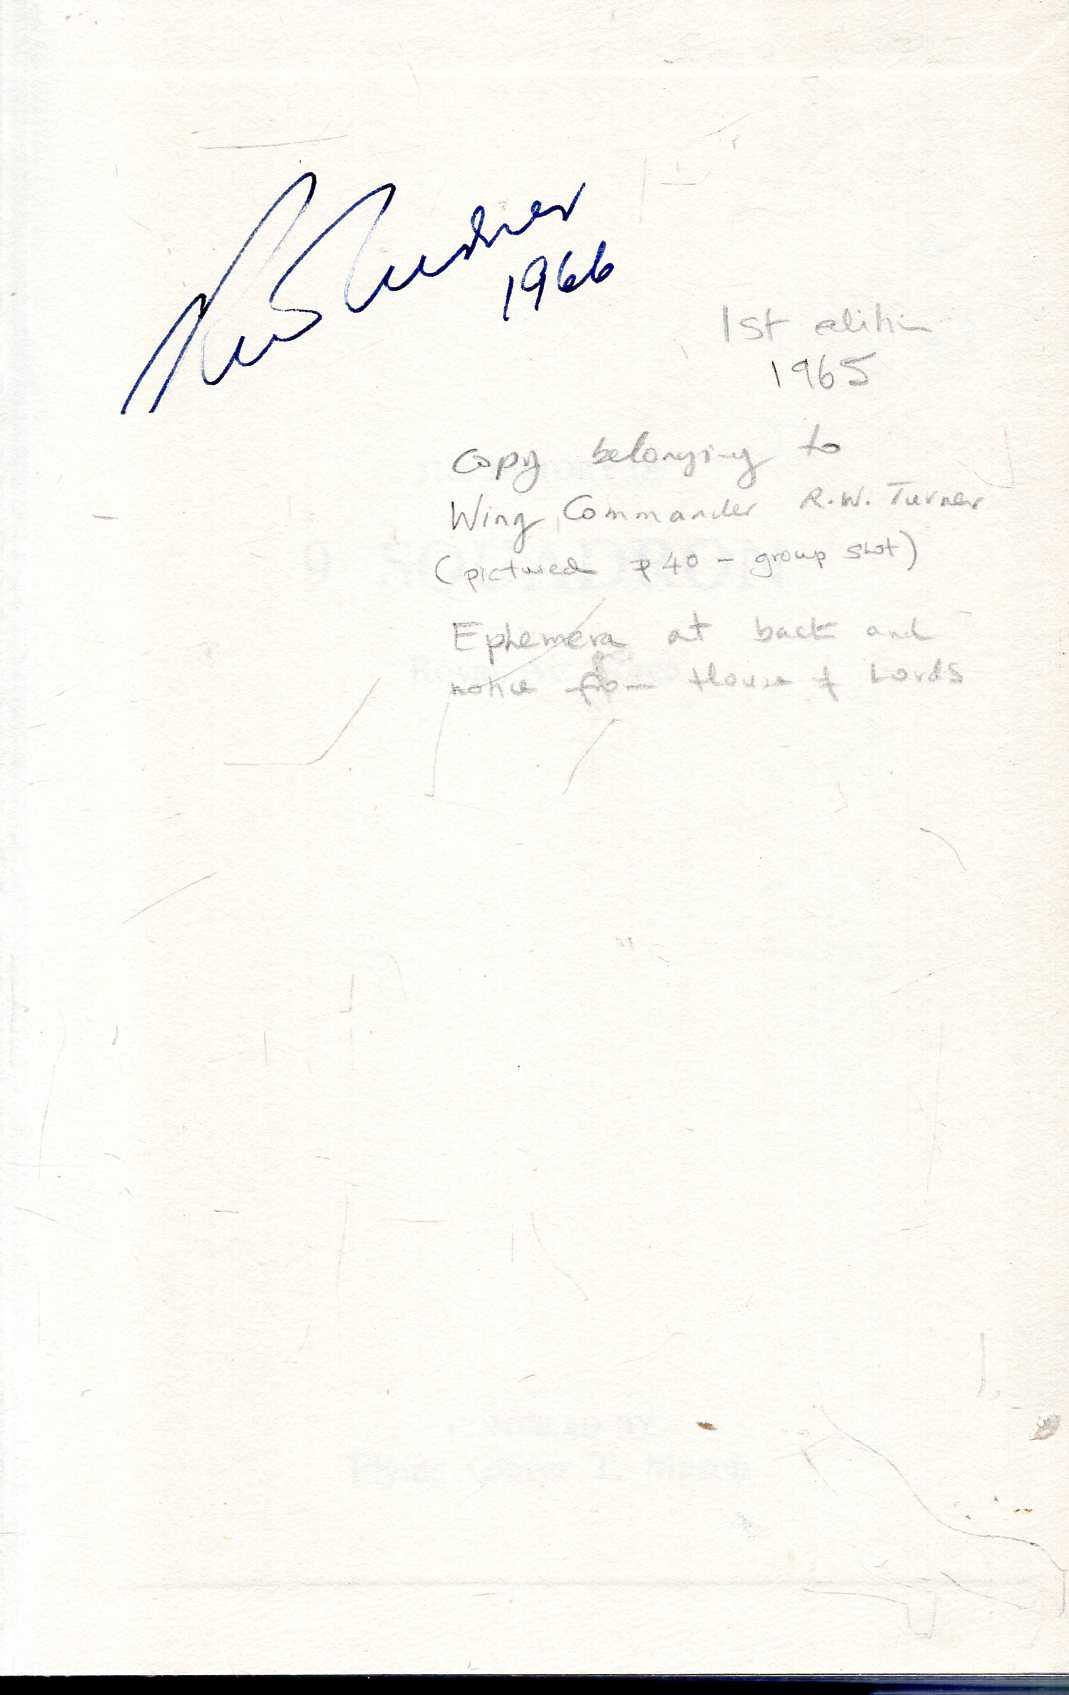 1966
1st edition
1965
Copy belonging to
Wing Commander R.W. Turner
(pictured p 40 - group shot)
Ephemera at back and
notice from House of Lords